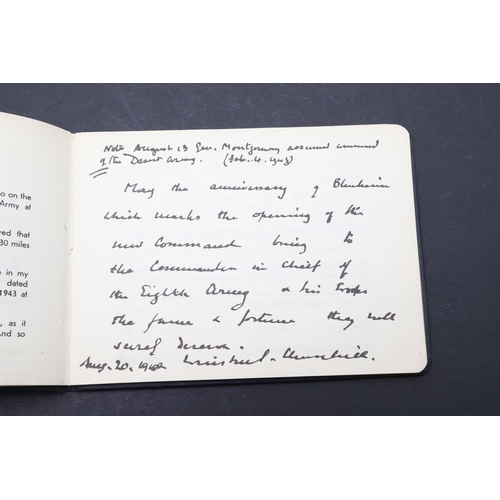 o on the
Army at
red that
30 miles
e in my
dated
1943 at
, as it
And so
Note August 13 Gen. Montgomery assumed command
of the Desert Army. (Feb. 4. 1943)
May the anniversary of Blenheim
which marks the opening of the
new Command bring to
the Commander in Chief of
the Eighth Army & his troops
the fame & fortune they will
surely deserve.
Aug. 20. 1942 Winston S. Churchill.